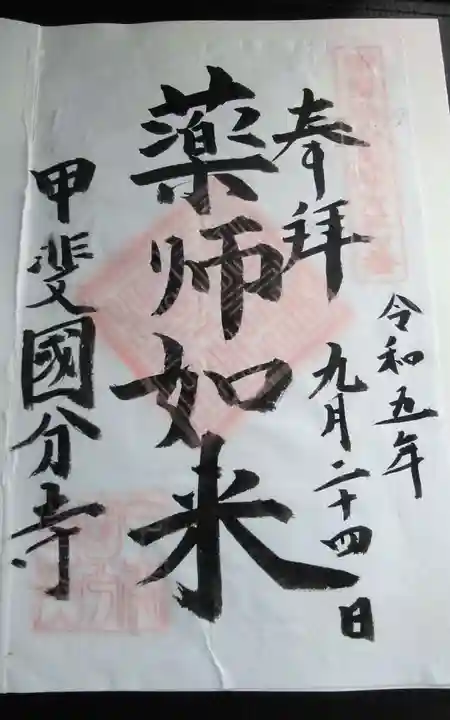 奉拜
令和五年
九月二十四日
薬师如来
甲斐國分寺